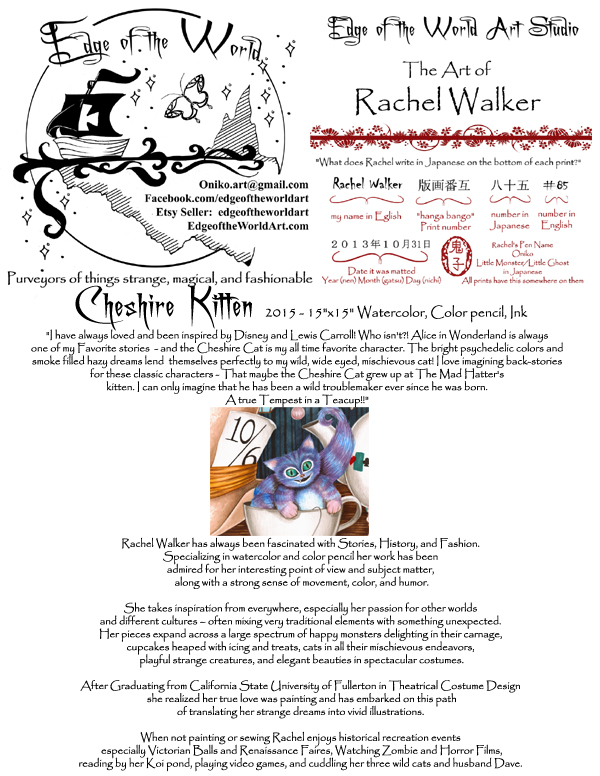 Edge of the World
Oniko.art@gmail.com
Facebook.com/edgeoftheworldart
Etsy Seller: edgeoftheworldart
EdgeoftheWorldArt.com
Purveyors of things strange, magical, and fashionable
Edge of the World Art Studio
The Art of
Rachel Walker
"What does Rachel write in Japanese on the bottom of each print?"
Rachel Walker 版画番互 八十五 #85
my name in Eglish "hanga bango" Print number number in Japanese number in English
2013年10月31日 鬼子
Date it was matted
Year (nen) Month (gatsu) Day (nichi)
Rachel's Pen Name
Oniko
Little Monster/Little Ghost
in Japanese
All prints have this somewhere on them
Cheshire Kitten 2015 - 15"x15" Watercolor, Color pencil, Ink
"I have always loved and been inspired by Disney and Lewis Carroll! Who isn't?! Alice in Wonderland is always
one of my Favorite stories - and the Cheshire Cat is my all time favorite character. The bright psychedelic colors and
smoke filled hazy dreams lend themselves perfectly to my wild, wide eyed, mischievous cat! I love imagining back-stories
for these classic characters - That maybe the Cheshire Cat grew up at The Mad Hatter's
kitten. I can only imagine that he has been a wild troublemaker ever since he was born.
A true Tempest in a Teacup!!"
10/6
Rachel Walker has always been fascinated with Stories, History, and Fashion.
Specializing in watercolor and color pencil her work has been
admired for her interesting point of view and subject matter,
along with a strong sense of movement, color, and humor.
She takes inspiration from everywhere, especially her passion for other worlds
and different cultures – often mixing very traditional elements with something unexpected.
Her pieces expand across a large spectrum of happy monsters delighting in their carnage,
cupcakes heaped with icing and treats, cats in all their mischievous endeavors,
playful strange creatures, and elegant beauties in spectacular costumes.
After Graduating from California State University of Fullerton in Theatrical Costume Design
she realized her true love was painting and has embarked on this path
of translating her strange dreams into vivid illustrations.
When not painting or sewing Rachel enjoys historical recreation events
especially Victorian Balls and Renaissance Faires, Watching Zombie and Horror Films,
reading by her Koi pond, playing video games, and cuddling her three wild cats and husband Dave.